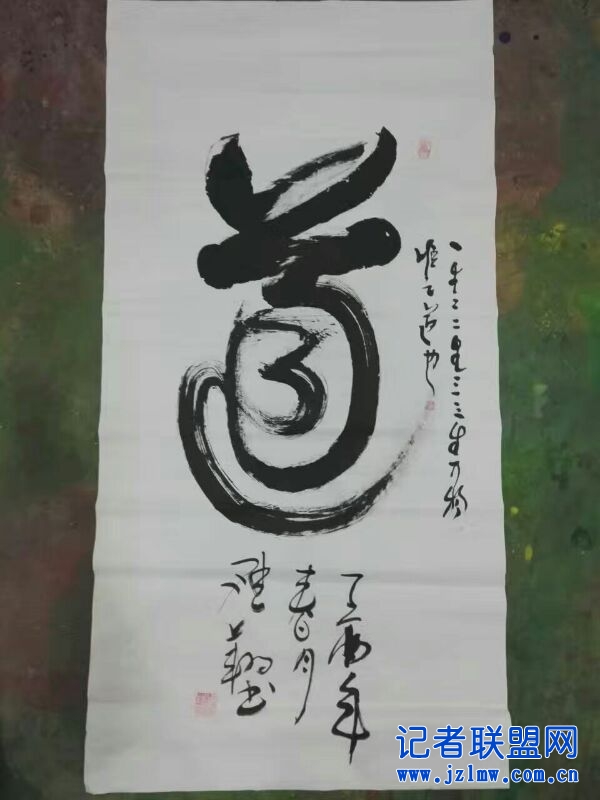 道
一生二二生三三生万物
道也
丁酉年
春月
书
记者联盟网
www.jzlmw.com.cn